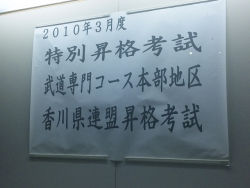 2010年3月度
特別昇格考試
武道専門コース本部地区
香川県連盟昇格考試